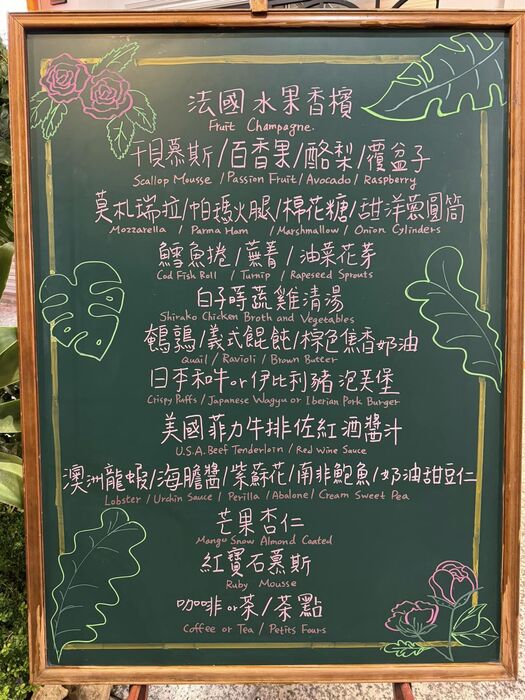 法國水果香檳
Fruit Champagne.
干貝慕斯/百香果/酪梨/覆盆子
Scallop Mousse / Passion Fruit / Avocado / Raspberry
莫札瑞拉/帕瑪火腿/棉花糖/甜洋蔥圓筒
Mozzarella / Parma Ham / Marshmallow / Onion Cylinders
鱈魚捲/蕪菁/油菜花芽
Cod Fish Roll / Turnip / Rapeseed Sprouts
白子蒔蔬雞清湯
Shirako Chicken Broth and Vegetables
鵪鶉/義式餛飩/棕色焦香奶油
Quail / Ravioli / Brown Butter
日本和牛or伊比利豬泡芙堡
Crispy Puffs / Japanese Wagyu or Iberian Pork Burger
美國菲力牛排佐紅酒醬汁
U.S.A. Beef Tenderloin / Red Wine Sauce
澳洲龍蝦/海膽醬/紫蘇花/南非鮑魚/奶油甜豆仁
Lobster / Urchin Sauce / Perilla / Abalone / Cream Sweet Pea
芒果杏仁
Mango Snow Almond Coated
紅寶石慕斯
Ruby Mousse
咖啡or茶/茶點
Coffee or Tea / Petits Fours